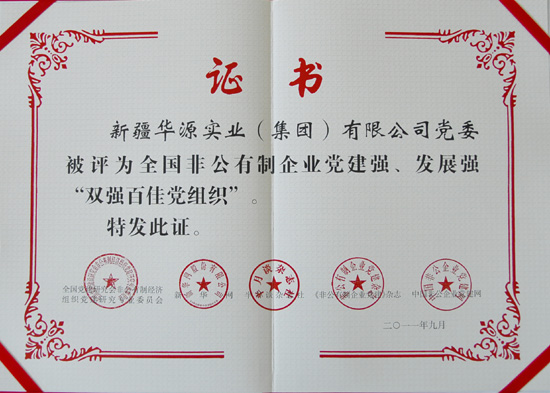 证书
新疆华源实业（集团）有限公司党委
被评为全国非公有制企业党建强、发展强
“双强百佳党组织”。
特发此证。
全国党建研究会非公有制经济
组织党建研究专业委员会
新华网
《非公有制企业党建》杂志
中国非公企业党建网
二〇一一年九月